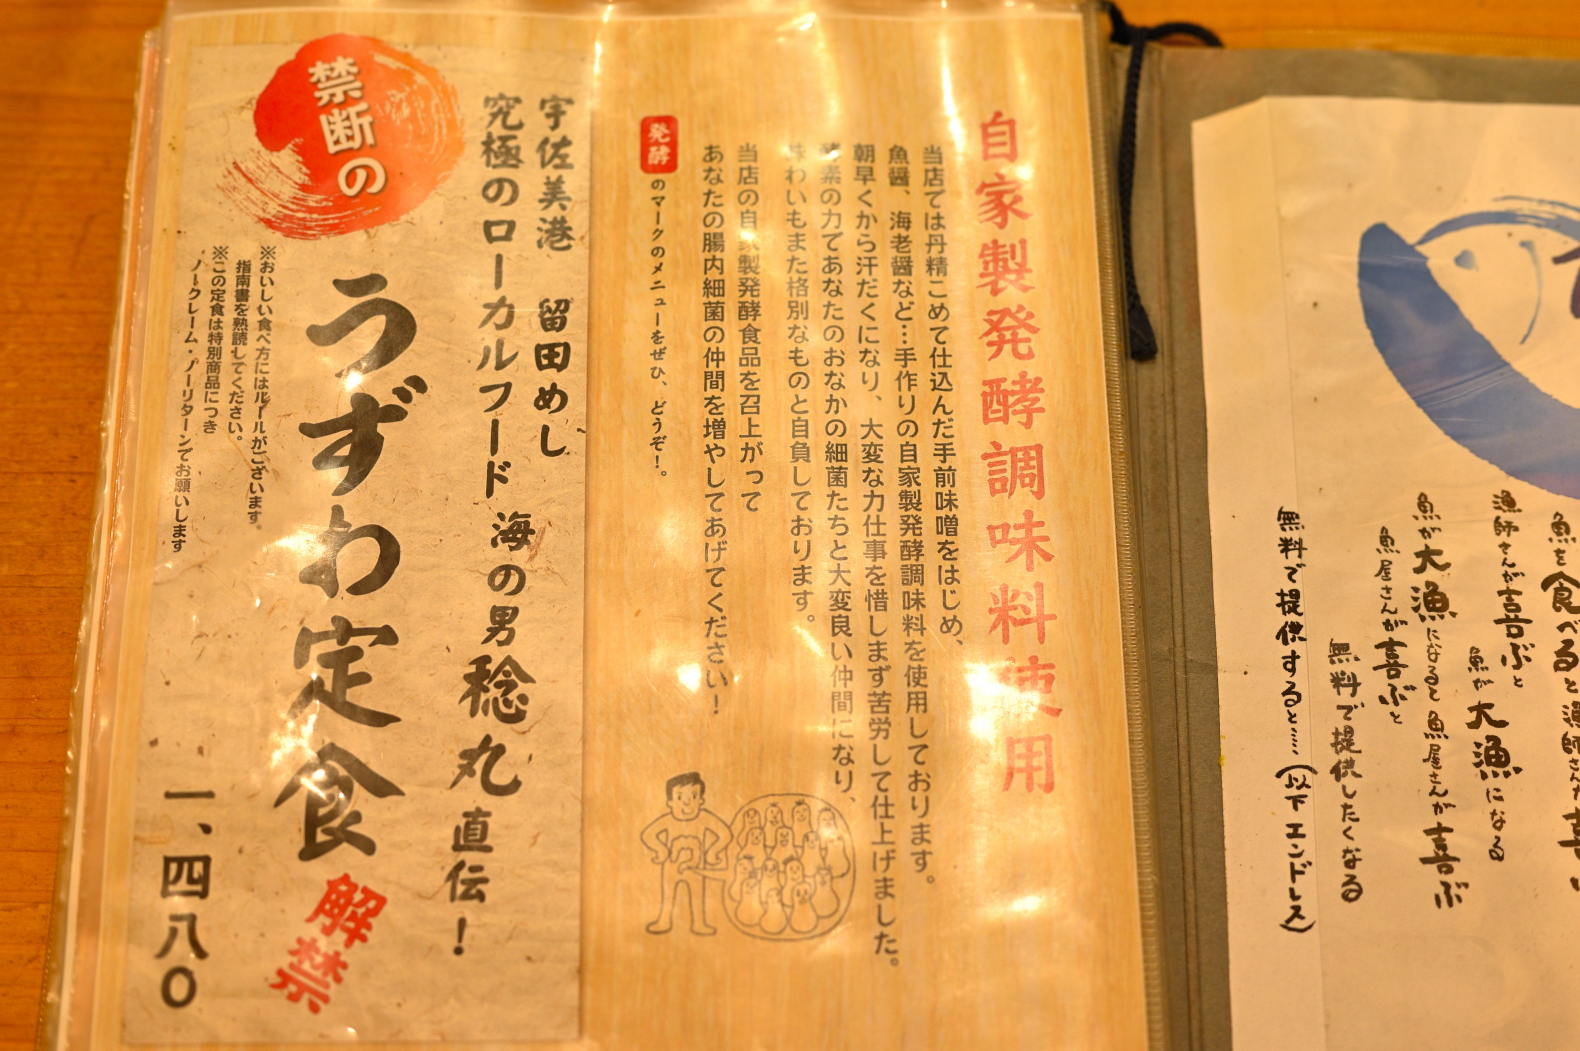 魚を食べると漁師さんが喜
漁師さんが喜ぶと
魚が大漁になる
魚が大漁になると魚屋さんが喜ぶ
魚屋さんが喜ぶと
無料で提供したくなる
無料で提供すると……(以下エンドレス)
自家製発酵調味料使用
当店では丹精こめて仕込んだ手前味噌をはじめ、
魚醤、海老醤など…手作りの自家製発酵調味料を使用しております。
朝早くから汗だくになり、大変な力仕事を惜しまず苦労して仕上げました。
酵素の力であなたのおなかの細菌たちと大変良い仲間になり、
味わいもまた格別なものと自負しております。
当店の自家製発酵食品を召上がって
あなたの腸内細菌の仲間を増やしてあげてください!
発酵のマークのメニューをぜひ、どうぞ!。
宇佐美港 留田めし
究極のローカルフード 海の男 稔丸 直伝!
禁断の
うずわ定食 解禁
※おいしい食べ方にはルールがございます。
指南書を熟読してください。
※この定食は特別商品につき
ノークレーム・ノーリターンでお願いします
一、四八〇